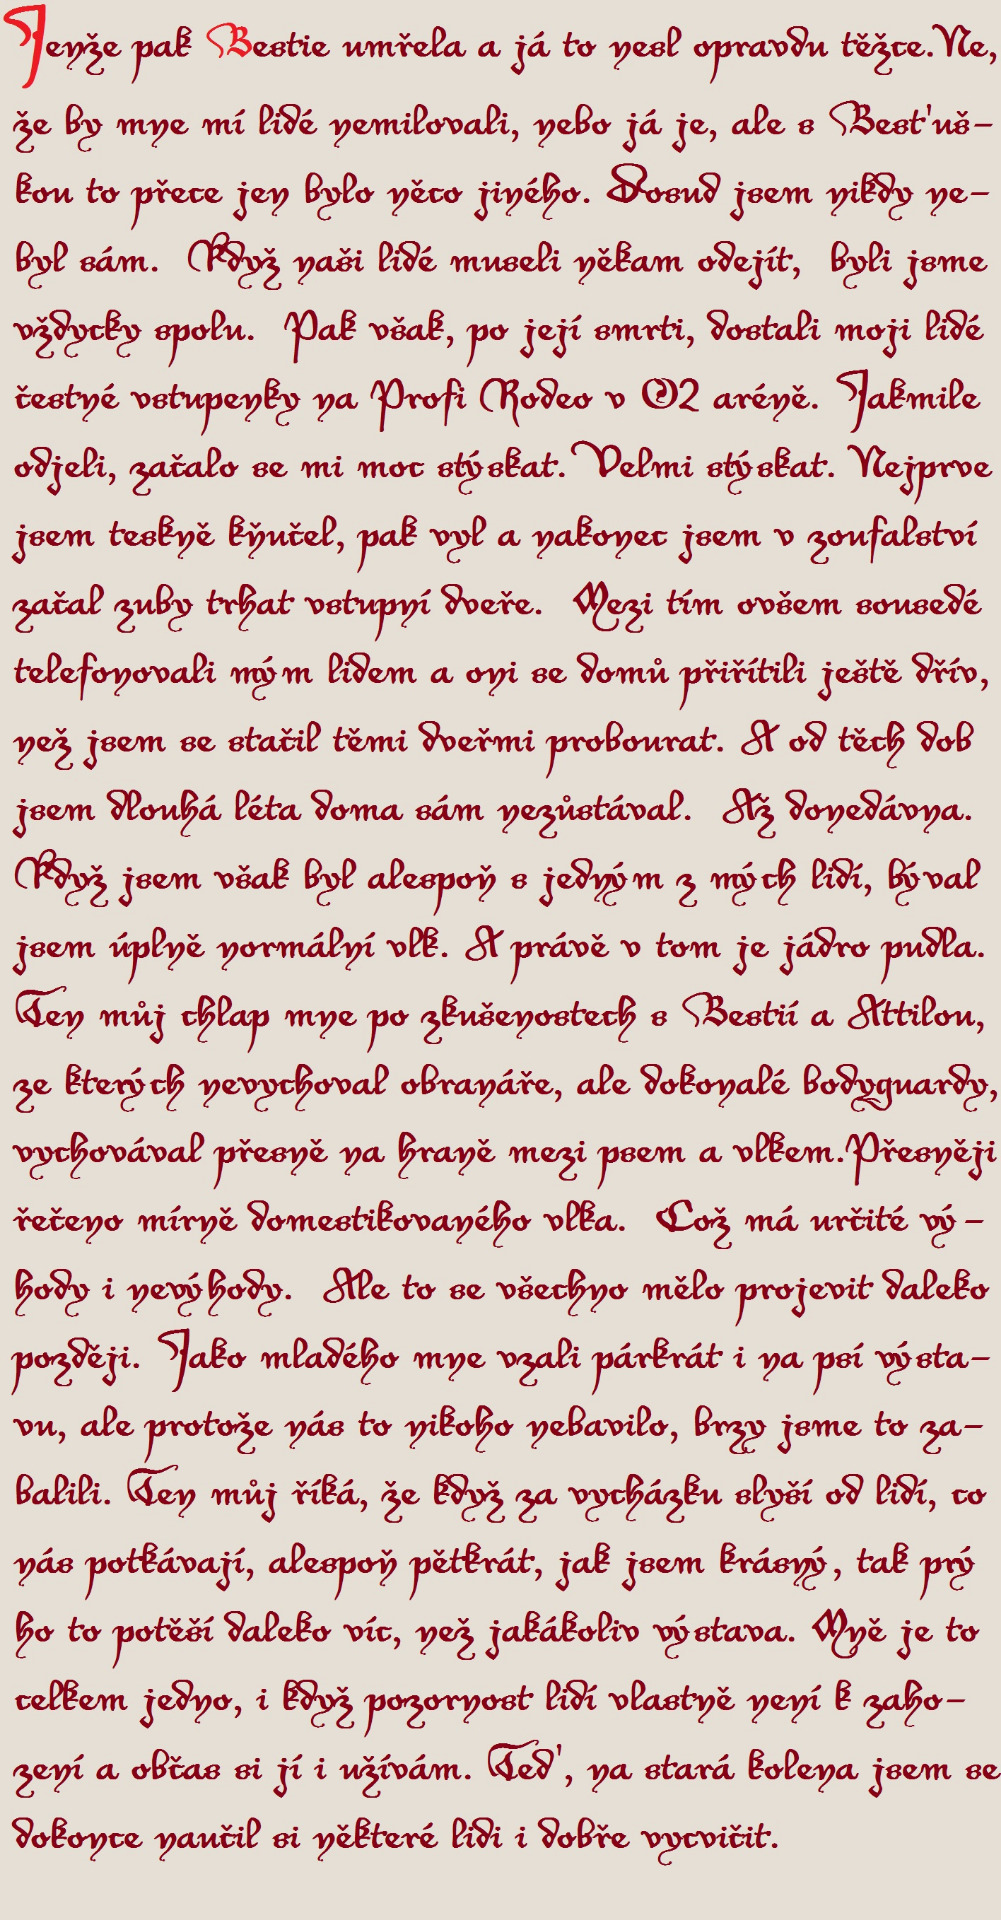 Jenže pak Bestie umřela a já to nesl opravdu těžce. Ne,
že by mne mí lidé nemilovali, nebo já je, ale s Best'uš-
kou to přece jen bylo něco jiného. Dosud jsem nikdy ne-
byl sám. Když naši lidé museli někam odejít, byli jsme
vždycky spolu. Pak však, po její smrti, dostali moji lidé
čestné vstupenky na Profi Rodeo v O2 aréně. Jakmile
odjeli, začalo se mi moc stýskat. Velmi stýskat. Nejprve
jsem teskně kňučel, pak vyl a nakonec jsem v zoufalství
začal zuby trhat vstupní dveře. Mezi tím ovšem sousedé
telefonovali mým lidem a oni se domů přiřítili ještě dřív,
než jsem se stačil těmi dveřmi probourat. A od těch dob
jsem dlouhá léta doma sám nezůstával. Až donedávna.
Když jsem však byl alespoň s jedným z mých lidí, býval
jsem úplně normální vlk. A právě v tom je jádro pudla.
Ten můj chlap mne po zkušenostech s Bestií a Attilou,
ze kterých nevychoval obranáře, ale dokonalé bodyguardy,
vychovával přesně na hraně mezi psem a vlkem. Přesněji
řečeno mírně domestikovaného vlka. Což má určité vý-
hody i nevýhody. Ale to se všechno mělo projevit daleko
později. Jako mladého mne vzali párkrát i na psí výsta-
vu, ale protože nás to nikoho nebavilo, brzy jsme to za-
balili. Ten můj říká, že když za vycházku slyší od lidí, co
nás potkávají, alespoň pětkrát, jak jsem krásný, tak prý
ho to potěší daleko víc, než jakákoliv výstava. Mně je to
celkem jedno, i když pozornost lidí vlastně není k zaho-
zení a občas si jí i užívám. Ted', na stará kolena jsem se
dokonce naučil si některé lidi i dobře vycvičit.